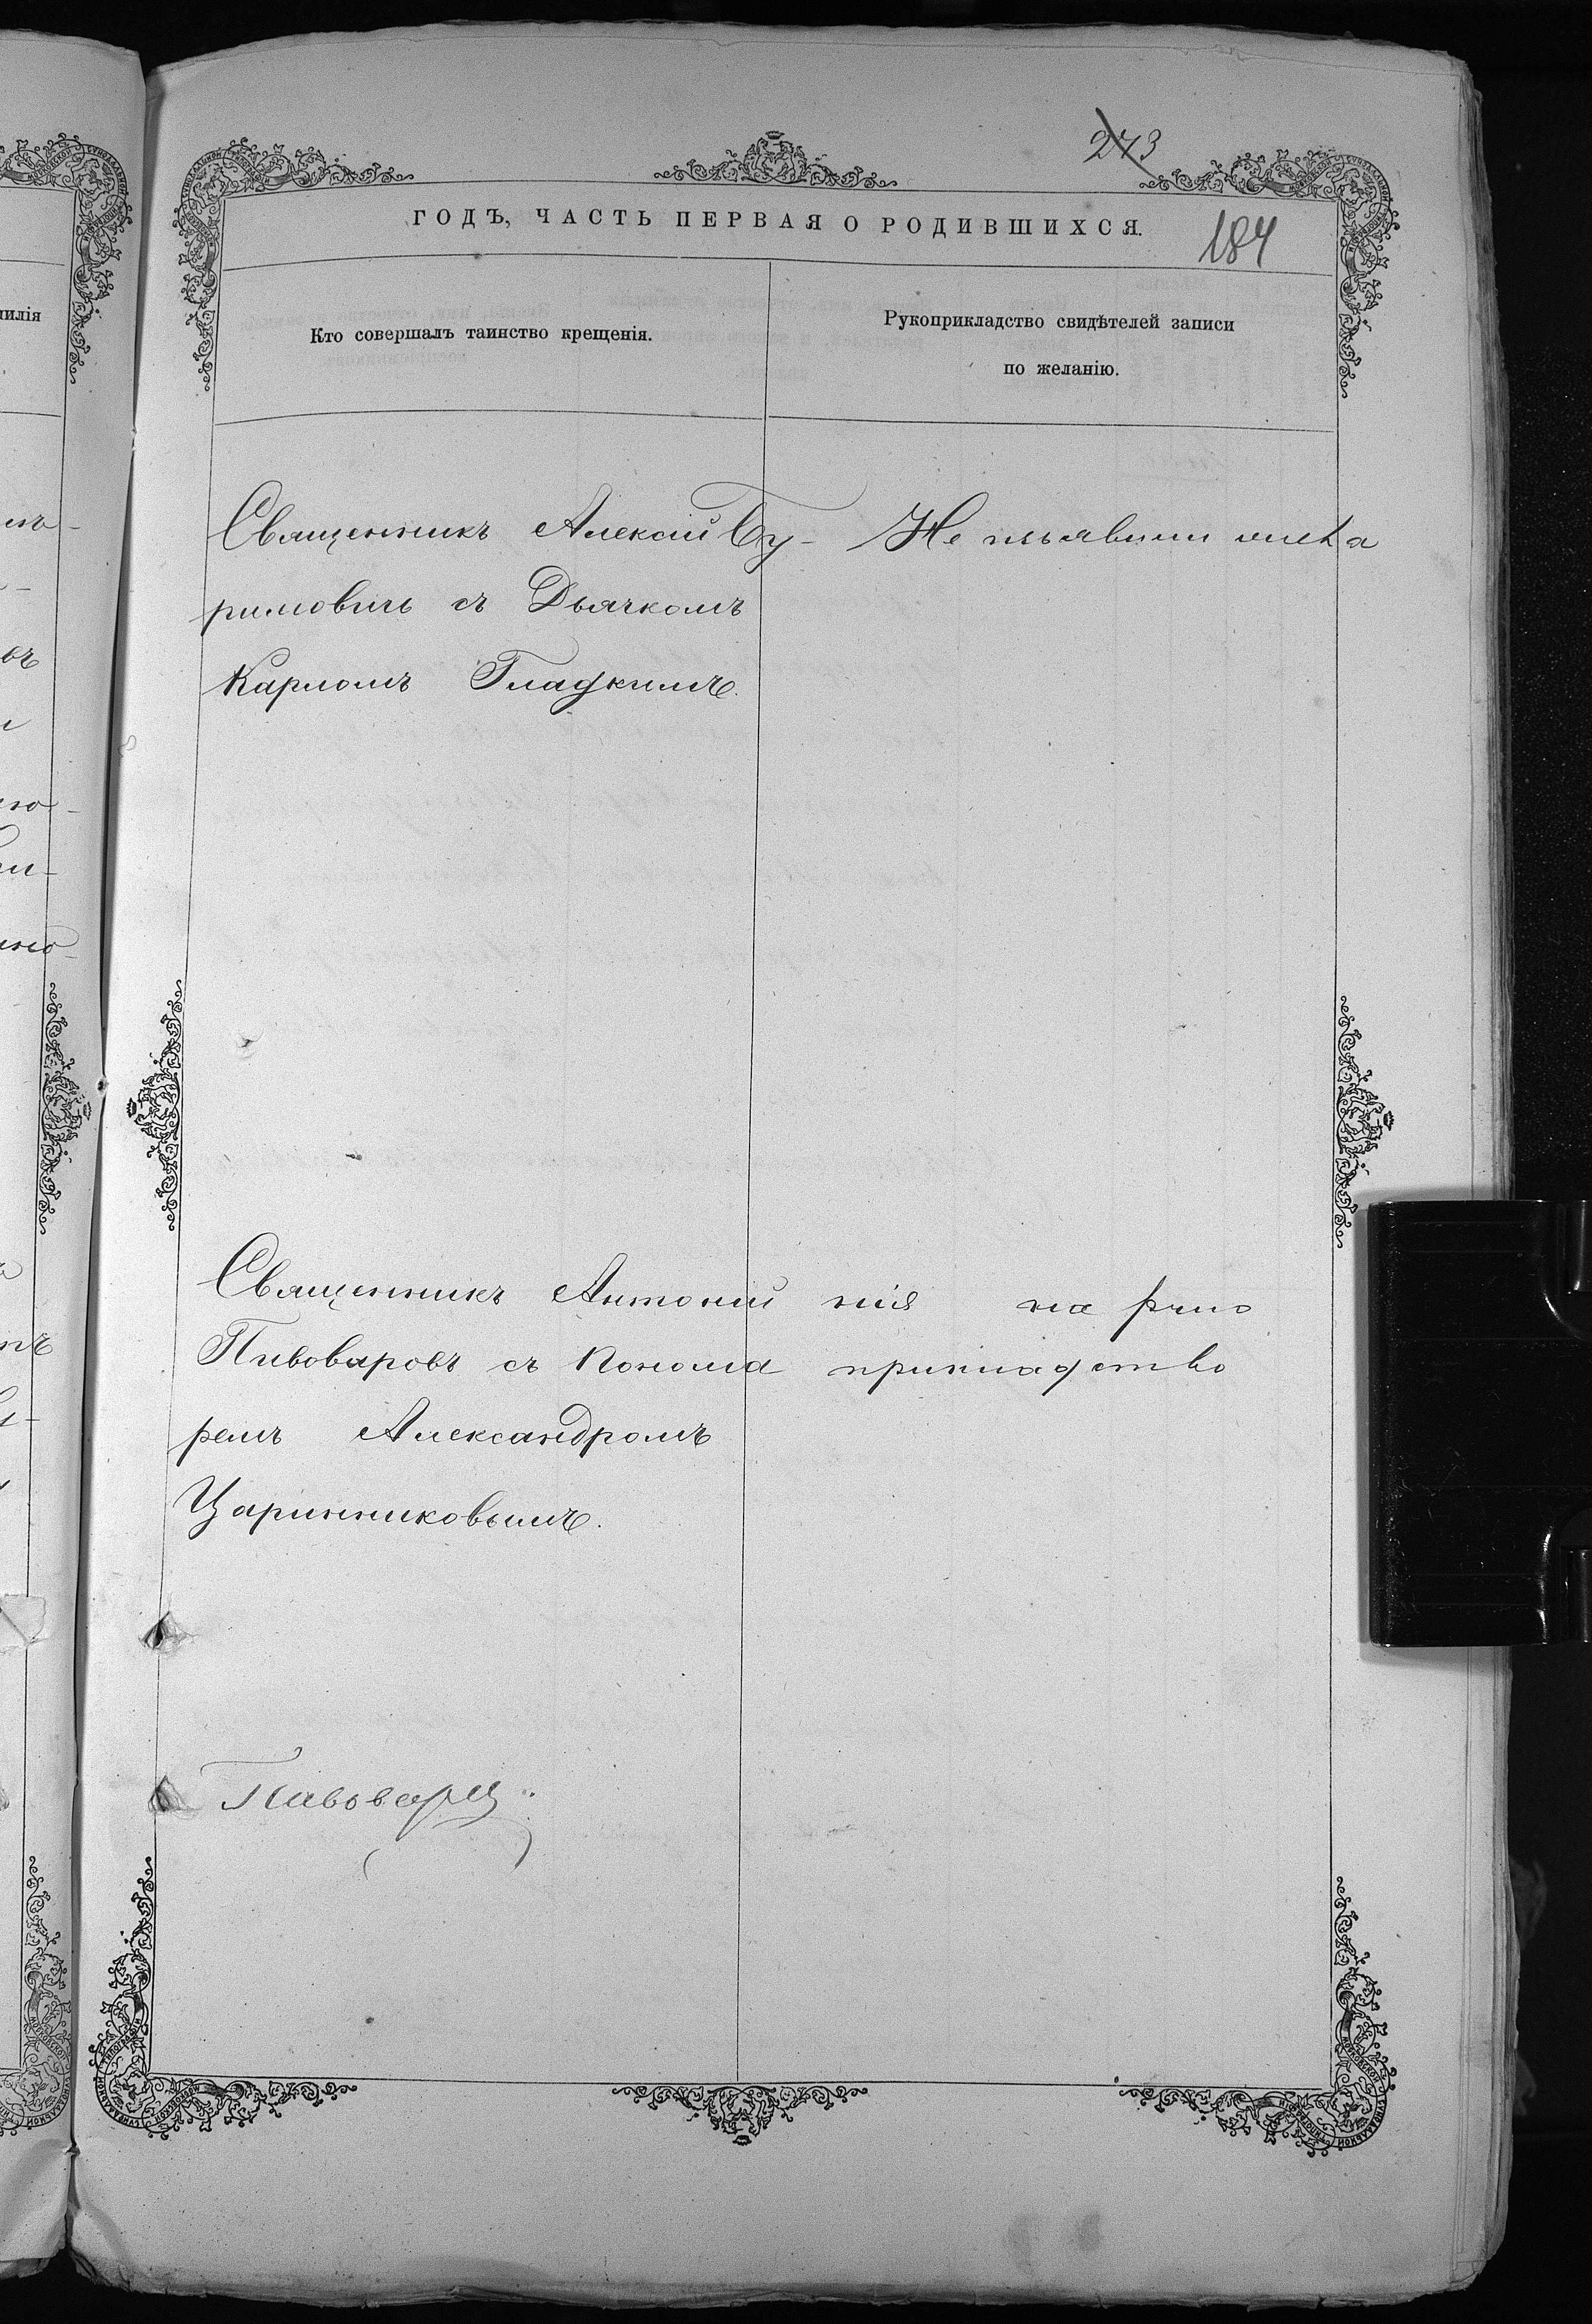 273
ГОДЪ, ЧАСТЬ ПЕРВАЯ О РОДИВШИХСЯ.
184
Кто совершалъ таинство крещенія.
Рукоприкладство свидѣтелей записи
по желанію.
Священникъ Алексій Бу-
римовичь съ Дьячкомъ
Карпомъ Гладкимъ.
Не изъявили
Священникъ Антоній
Пивоваровъ съ Понома
ремъ Александромъ
Царинниковымъ.
нія на
прикладство
милія